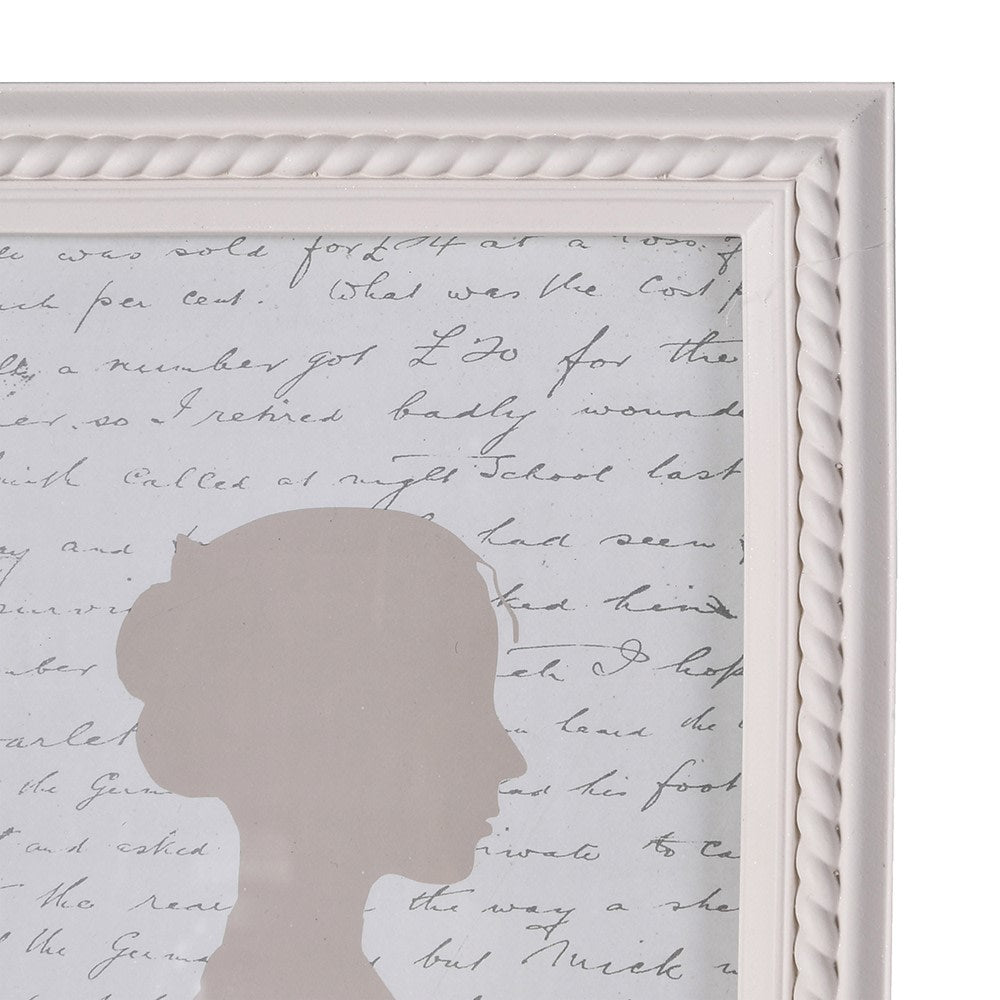 was sold for £ 04 at a loss of
per cent. What was the Cost
a number got £ 20 for the
so I retired badly wounde
called at night School last
and had seen
ked him
ber ch I hop
arlet heard the
the Germ ad his foot
and asked rivate to ca
the rear the way a she
the Germa but Mick